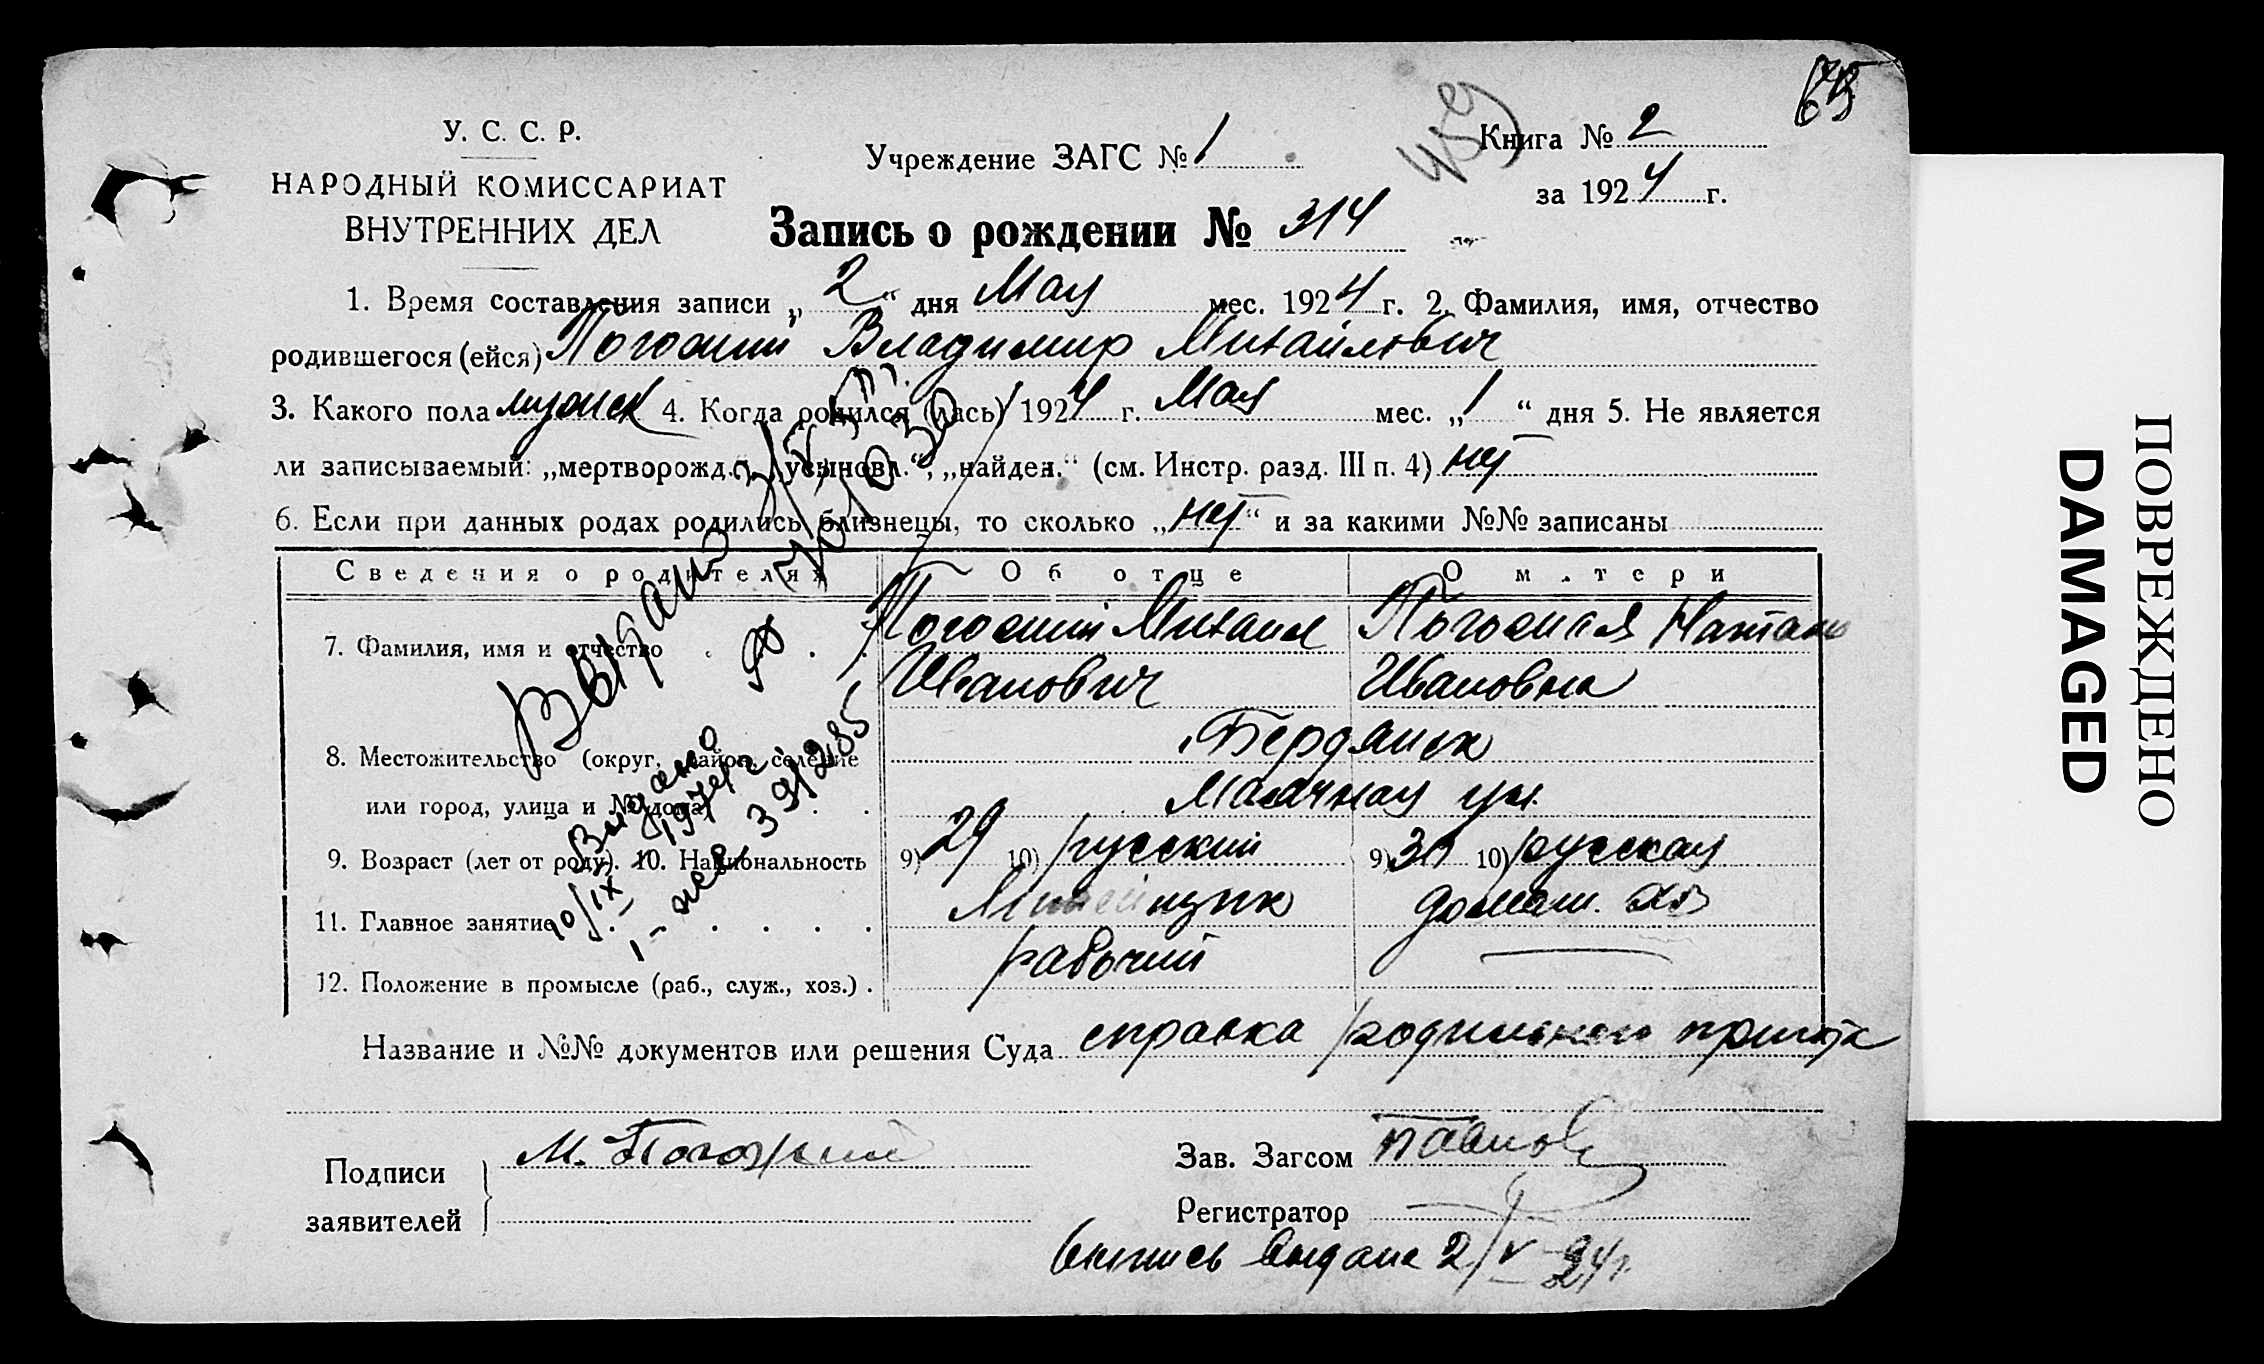 У. С. С. Р.
НАРОДНЫЙ КОМИССАРИАТ
ВНУТРЕННИХ ДЕЛ
Учреждение ЗАГС № 1
Книга № 2
за 1924 г.
Запись о рождении № 314
1. Время составления записи „2“ дня Мая мес. 1924 г. 2. Фамилия, имя, отчество
родившегося (ейся) Владимир Михайлович
3. Какого пола мужск 4. Когда родился (лась) 1924 г. Мая мес. „1“ дня 5. Не является
ли записываемый: „мертворожд.“, „усыновл.“, „найден.“ (см. Инстр. разд. III п. 4) нет
6. Если при данных родах родились близнецы, то сколько „нет“ и за какими №№ записаны
Сведения о родителях Об отце О матери
7. Фамилия, имя и отчество Михаил
Иванович Ивановна
8. Местожительство (округ, район, селение Бердянск
или город, улица и № дома) ул.
9. Возраст (лет от роду). 10. Национальность 9) 29 10) русский 9) 30 10) русская
11. Главное занятие домаш. хоз
12. Положение в промысле (раб., служ., хоз.) рабочий
Название и №№ документов или решения Суда справка родильного приюта
Подписи
заявителей
М.
Зав. Загсом Павлов
Регистратор
выпись выдана 2/V-24г.
Выдано
Выдано
391285
ПОВРЕЖДЕНО
DAMAGED